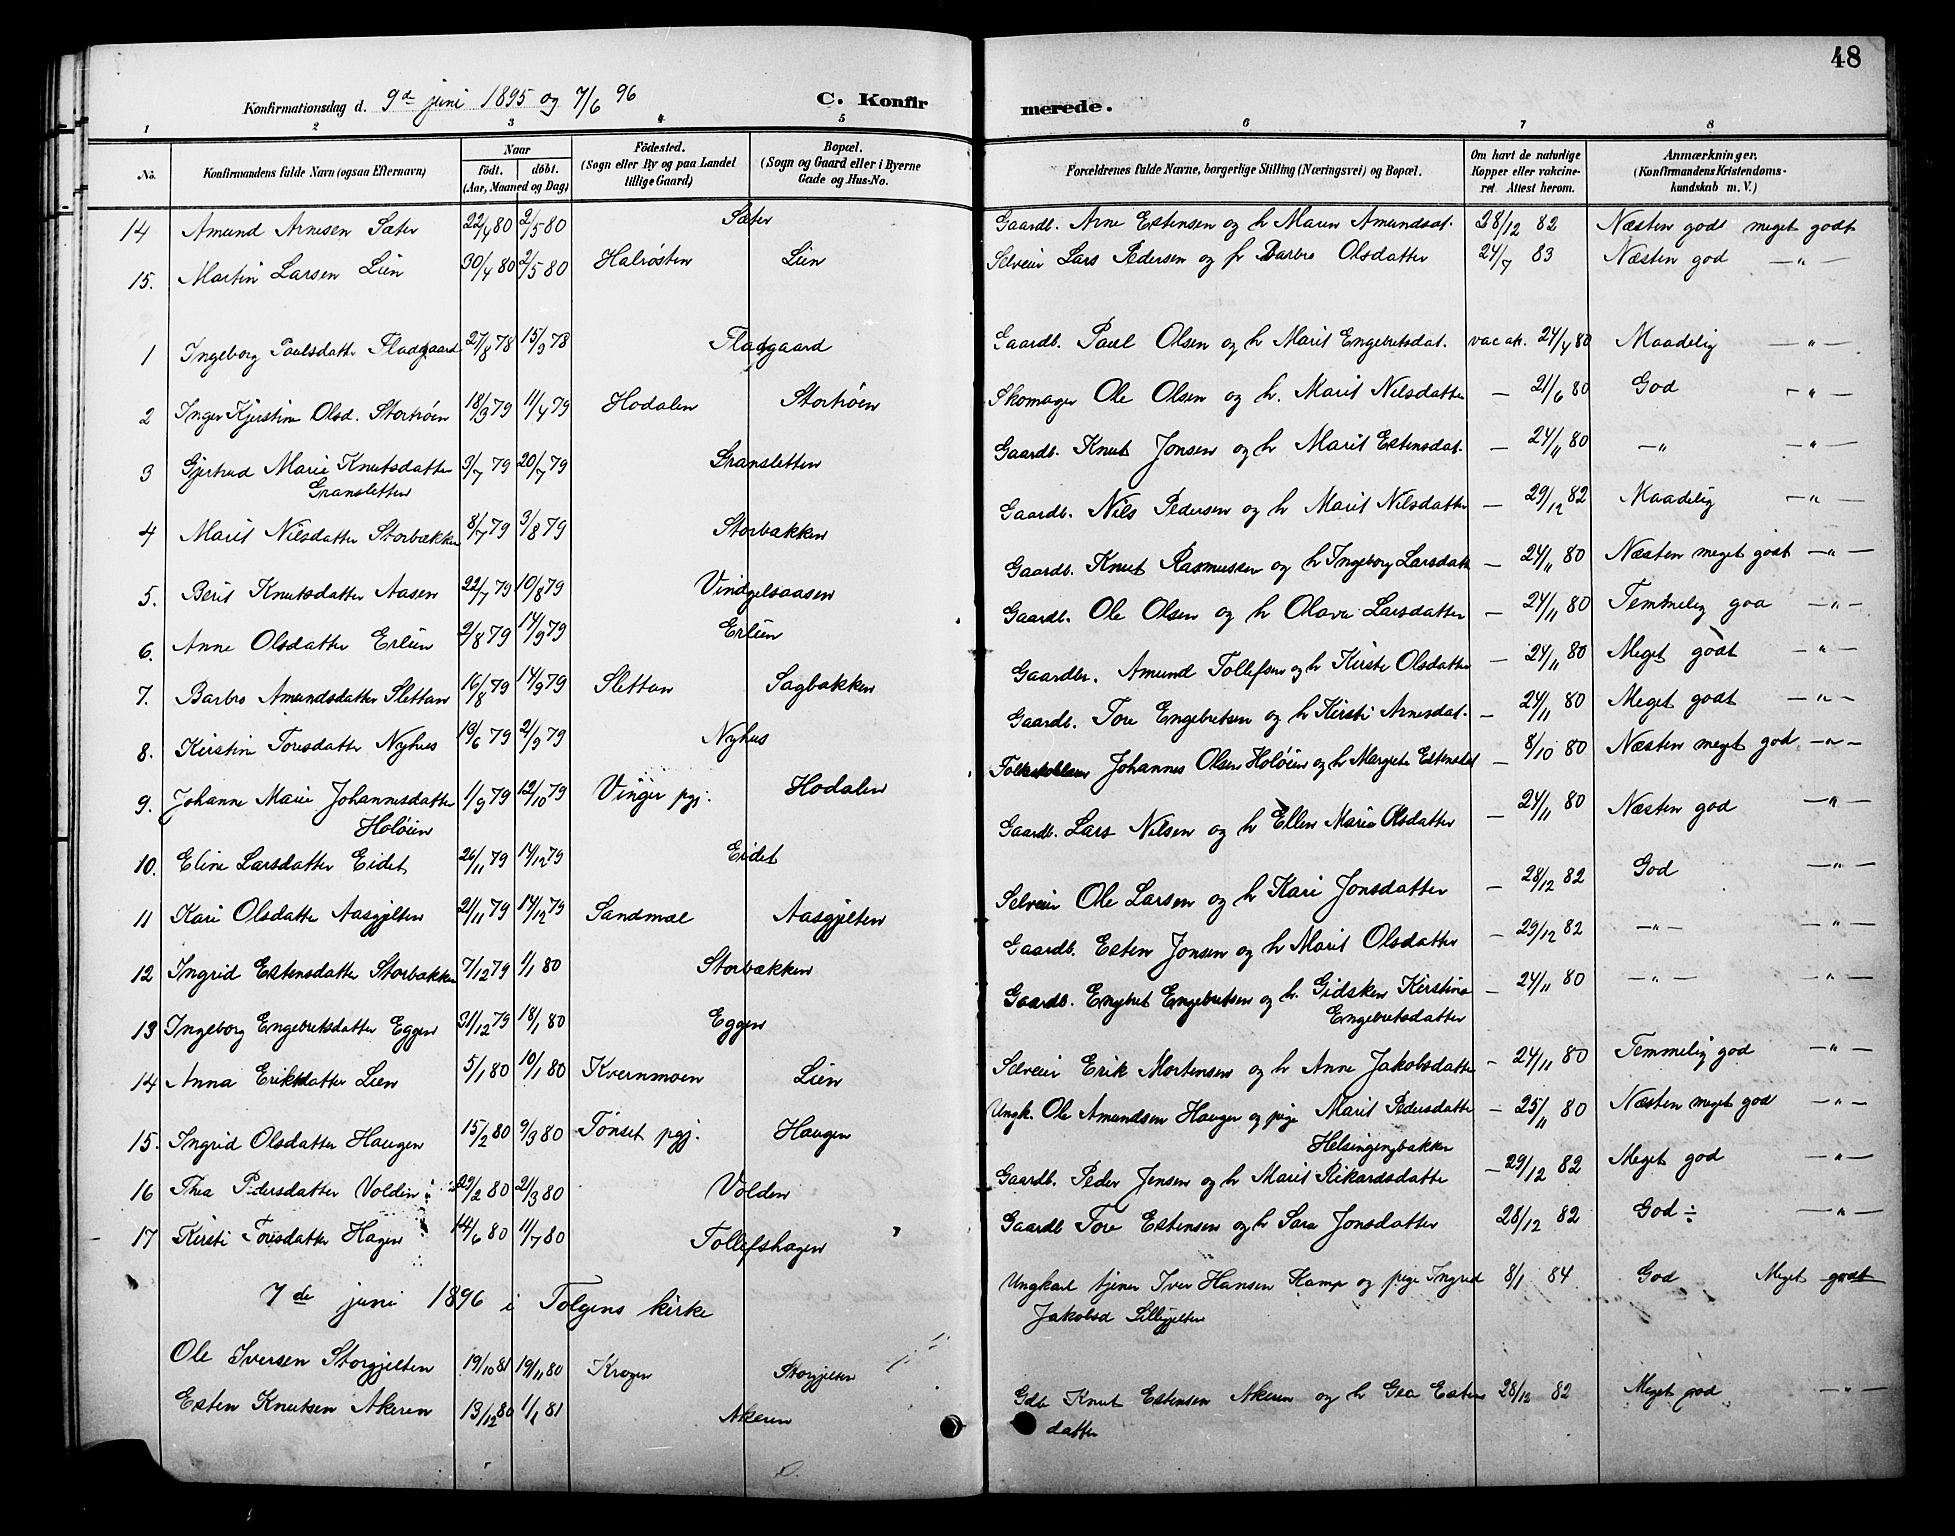 48
Konfirmationsdag d. 9de juni 1895 og 7/6 96 C. Konfirmerede.
1 2 3 4 5 6 7 8
No. Konfirmandens fulde Navn (ogsaa Efternavn) Naar födt. döbt. (Aar, Maaned og Dag) Födested. (Sogn eller By og paa Landet tillige Gaard) Bopæl. (Sogn og Gaard eller i Byerne Gade og Hus-No. Forældrenes fulde Navne, borgerlige Stilling (Næringsvei) og Bopæl. Om havt de naturlige Kopper eller vakcineret. Attest herom. Anmærkninger. (Konfirmandens Kristendomskundskab m. V.)
14 Amund Arnesen Sæter 22/4 80 2/5 80 Sæter Gaardb. Arne Estensen og h Maren Amundsdat. 28/12 82 Næsten godt meget godt
15. Martin Larsen Lien 30/4 80 2/5 80 Halrøsten Lien Selveier Lars Pedersen og h Barbro Olsdatter 24/7 83 Næsten god —"—
1 Ingeborg Paulsdatter Fladgaard 27/8 78 15/9 78 Fladgaard Gaardb. Paul Olsen og h Marit Engebretsdat. vac at. 24/4 80 Maadelig —"—
2 Inger Kjerstine Olsd. Stortrøen 18/3 79 11/4 79 Hodalen Stortrøen Skomager Ole Olsen og h. Marit Nilsdatter — 21/6 80 God —"—
3 Gjertrud Marie Knutsdatter Gransletten 3/7 79 20/7 79 Gransletten Gaardb. Knut Jonsen og h Marit Estensdat. — 24/11 80 —" —"—
4 Marit Nilsdatter Storbækken 8/7 79 3/8 79 Storbakken Gaardb. Nils Pedersen og h Marit Nilsdatter — 29/12 82 Maadelig —"—
5. Berit Knutsdatter Aasen 22/7 79 10/8 79 Vindgelsaasen Gaardb. Knut Rasmussen og h Ingeborg Larsdatt — 24/11 80 Næsten meget godt —"—
6. Anne Olsdatter Erlien 2/8 79 14/9 79 Erlien Gaardb. Ole Olsen og h Olava Larsdatter — 24/11 80 Temmelig goa —"—
7. Barbro Amundsdatter Slettan 16/8 79 14/9 79 Slettan Sagbakken Gaardbr. Amund Tollefsen og h Kirsti Olsdatter — 24/11 80 Meget godt —"—
8. Kirstin Toresdatter Nyhus 19/6 79 2/9 79 Nyhus Gaardb. Tore Engebretsen og h Kirsti Arnesdat. — 24/11 80 Meget godt —"—
9. Johanne Marie Johannesdatter Holøien 1/9 79 12/10 79 Vinger pgj. Hodalen Johannes Olsen Holøien og h Margrete Estensdat — 8/10 80 Næsten meget god —"—
10. Eline Larsdatter Eidet 26/11 79 14/12 79 Eidet Gaardb. Lars Nilsen og h Ellen Maria Olsdatter — 24/11 80 Næsten god —"—
11 Kari Olsdatter Aasgjelten 21/11 79 14/12 79 Sandmæl Aasgjelten Selveier Ole Larsen og h Kari Jonsdatter — 28/12 82 God —"—
12 Ingrid Estensdatter Storbakken 7/12 79 1/1 80 Storbækken Gaardb. Esten Jonsen og h Marit Olsdatter — 29/12 82 —"— —"—
13 Ingeborg Engebretsdatter Eggen 31/12 79 18/1 80 Eggen Gaardb. Engebret Engebretsen og h. Gidsken Kirstine Engebretsdatter — 24/11 80 —"— —"—
14 Anna Eriksdatter Lien 5/1 80 10/1 80 Kvernmoen Lien Selveier Erik Mortensen og h Anne Jakobsdatte — 24/11 80 Temmelig god —"—
15. Ingrid Olsdatter Haugen 15/2 80 9/3 80 Tønset pgj. Haugen Ungk. Ole Amundsen Hauger og pige Marit Pedersdatter Helsingengbakken — 25/11 80 Næsten meget god —"—
16 Thea Pedersdatter Volden 29/2 80 21/3 80 Volden Gaardb. Peder Jensen og h Marit Rikardsdatter — 29/12 82 Meget god —"—
17 Kirsti Toresdatter Hagen 14/6 80 11/7 80 Tollefshagen Gaardb Tore Estensen og h Sara Jonsdatter 28/12 82 God ÷ —"—
7de juni 1896 i Tolgens kirke
Ole Iversen Storgjelten 19/10 81 19/11 80 Krogen Storgjelten Ungkarl tjener Iver Hansen Kamp og pige Ingrid Jakobsd Lillegjelten 8/1 84 God Meget godt
Esten Knutsen Akeren 13/12 80 1/1 81 Akeren Gdb Knut Estensen Akeren og h Gea Estensdatter 28/12 82 Meget god —"—